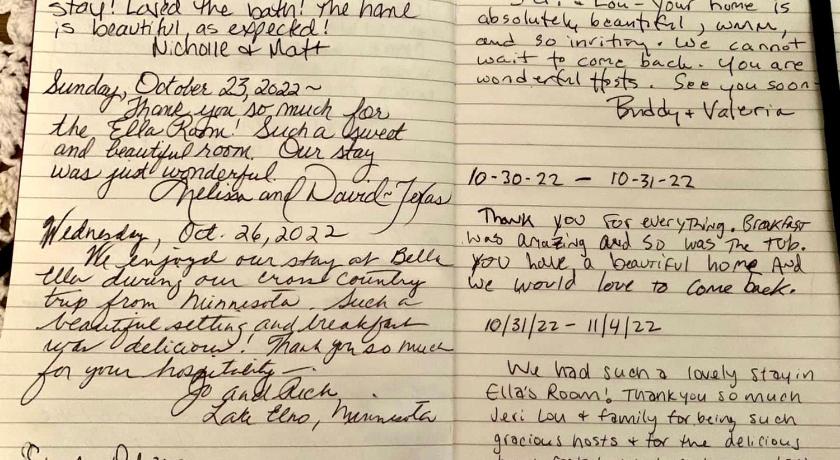 stay! Loved the bath! The home
is beautiful, as expected!
Nicholle & Matt
Sunday, October 23, 2022~
Thank you so much for
the Ella Room! Such a sweet
and beautiful room. Our stay
was just wonderful.
Melissa and David~Texas
Wednesday, Oct. 26, 2022
We enjoyed our stay at Bella
Ella during our cross country
trip from Minnesota. Such a
beautiful setting and breakfast
was delicious! Thank you so much
for your hospitality—
Jo and Rich
Lake Elmo, Minnesota
Lou - your home is
absolutely beautiful, warm,
and so inviting. We cannot
wait to come back. You are
wonderful Hosts. See you soon
Buddy + Valeria
10-30-22 - 10-31-22
Thank you for everything. Breakfast
was amazing and so was the tub.
You have a beautiful home And
we would love to come back.
10/31/22 - 11/4/22
We had such a lovely stay in
Ella's Room! Thank you so much
Jeri Lou & family for being such
gracious hosts & for the delicious